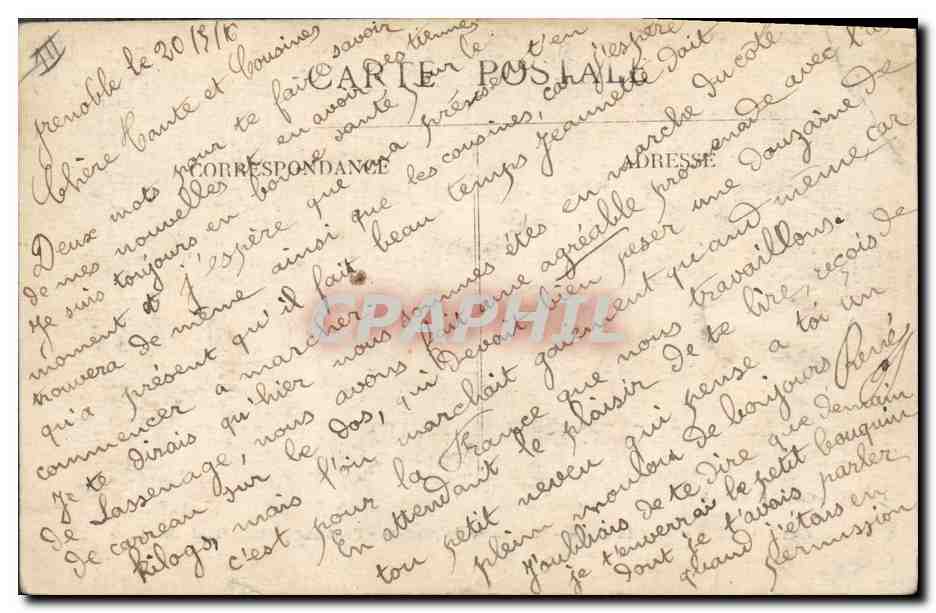 III
Grenoble le 20/5/16
CARTE POSTALE
CORRESPONDANCE
ADRESSE
Chère Tante et Cousines
Deux mots pour te faire savoir
de mes nouvelles et en avoir des tiennes
Je suis toujours en bonne santé pour le
moment et j'espère que ma présente t'en
trouvera de même ainsi que les cousines, car j'espère
qu'a présent qu'il fait beau temps Jeannette doit
commencer a marcher.
Je te dirais qu'hier nous sommes étés en marche du côté
de Sassenage, nous avons fait une agréable promenade avec l'as
de carreau sur le dos, qui devait bien peser une douzaine de
kilogs, mais l'on marchait gaiement quand même car
c'est pour la France que nous travaillons.
En attendant le plaisir de te lire, reçois de
ton petit neveu qui pense a toi un
plein moulon de bonjours René
J'oubliais de te dire que demain
je t'enverrai le petit bouquin
dont je t'avais parler
quand j'étais en
permission
CPAPHIL